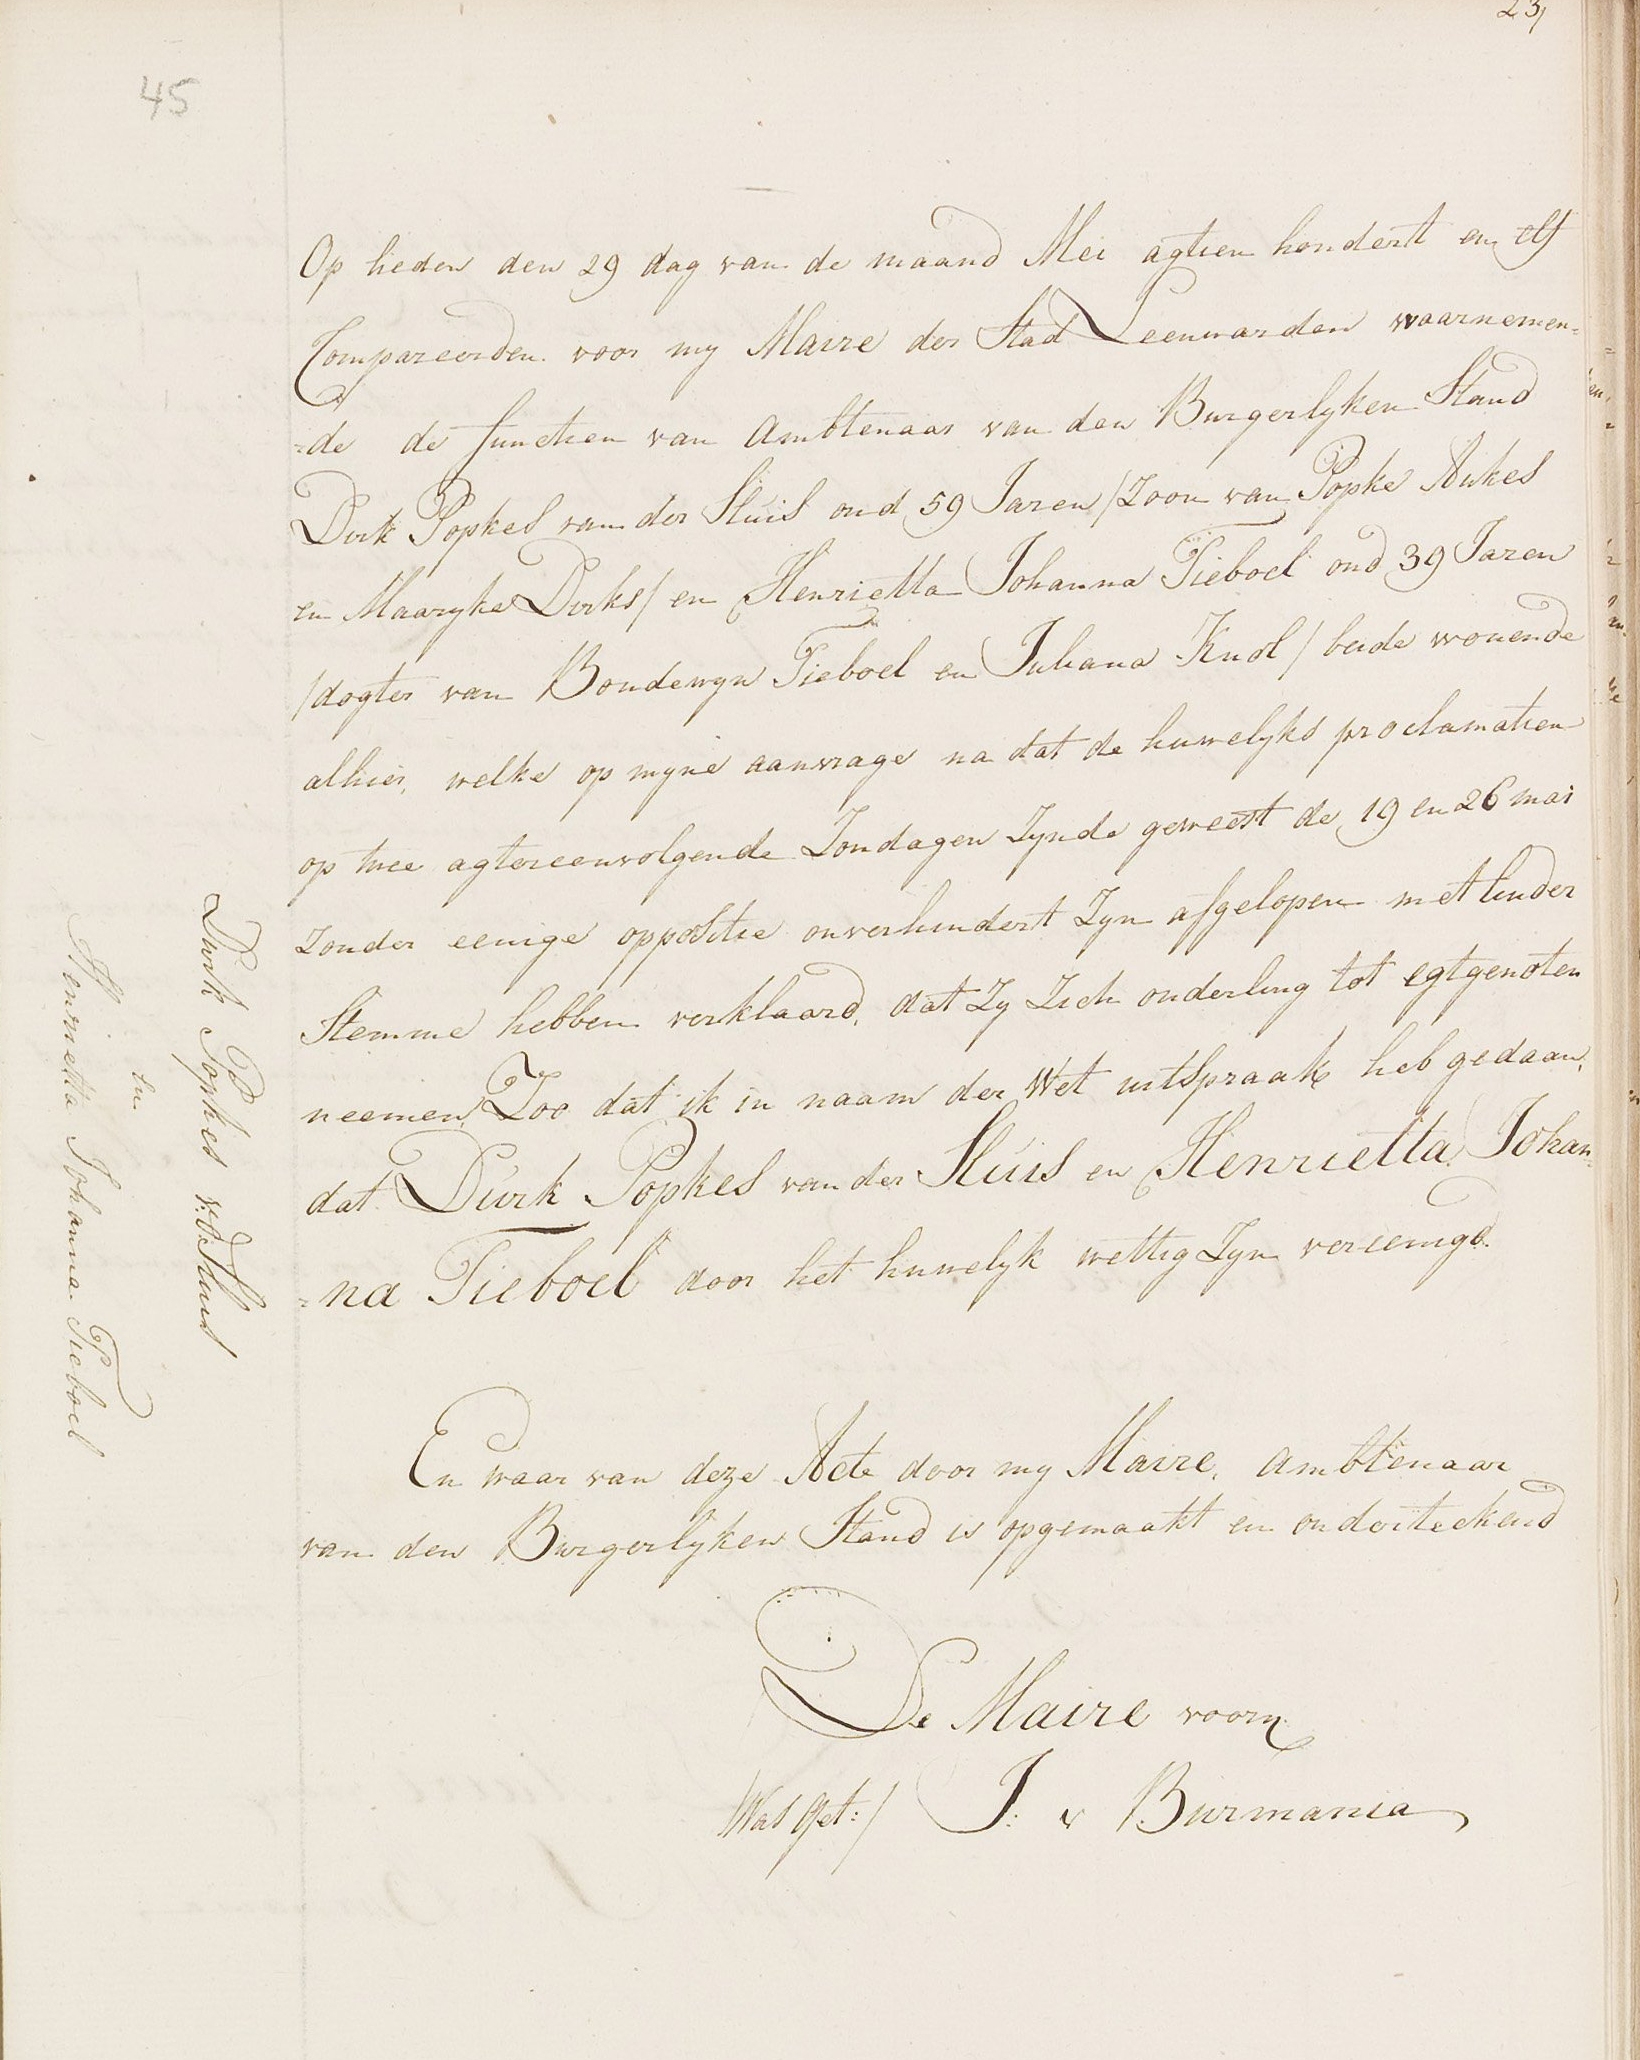 23,
45
Op heden den 29 dag van de maand Mei agtien hondert en elf
Compareerden voor my Maire der Stad Leeuwarden waarnemen-
=de de functien van Ambtenaar van den Burgerlyken Stand
Durk Popkes van der Sluis oud 59 Jaren /Zoon van Popke Aukes
en Maaryke Durks/ en Henrietta Johanna Tieboel oud 39 Jaren
/dogter van Boudewyn Tieboel en Juliana Knol/ beide wonende
alhier, welke op myne aanvrage na dat de huwelyks proclamatien
op twee agtereenvolgende Zondagen Zynde geweest de 19 en 26 mai
Zonder eenige oppositie onverhindert Zyn afgelopen met luider
Stemme hebben verklaard, dat Zy Zich onderling tot egtgenoten
neemen, Zoo dat ik in naam der Wet uitspraak heb gedaan,
dat Durk Popkes van der Sluis en Henrietta Johan-
=na Tieboel door het huwelyk wettig Zyn vereenigd.
Durk Popkes v:d:Sluis
en
Henrietta Johanna Tieboel
En waar van deze Acte door my Maire, Ambtenaar
van den Burgerlyken Stand is opgemaakt en onderteekend
De Maire voorn
Was Get:/ J: v Burmania